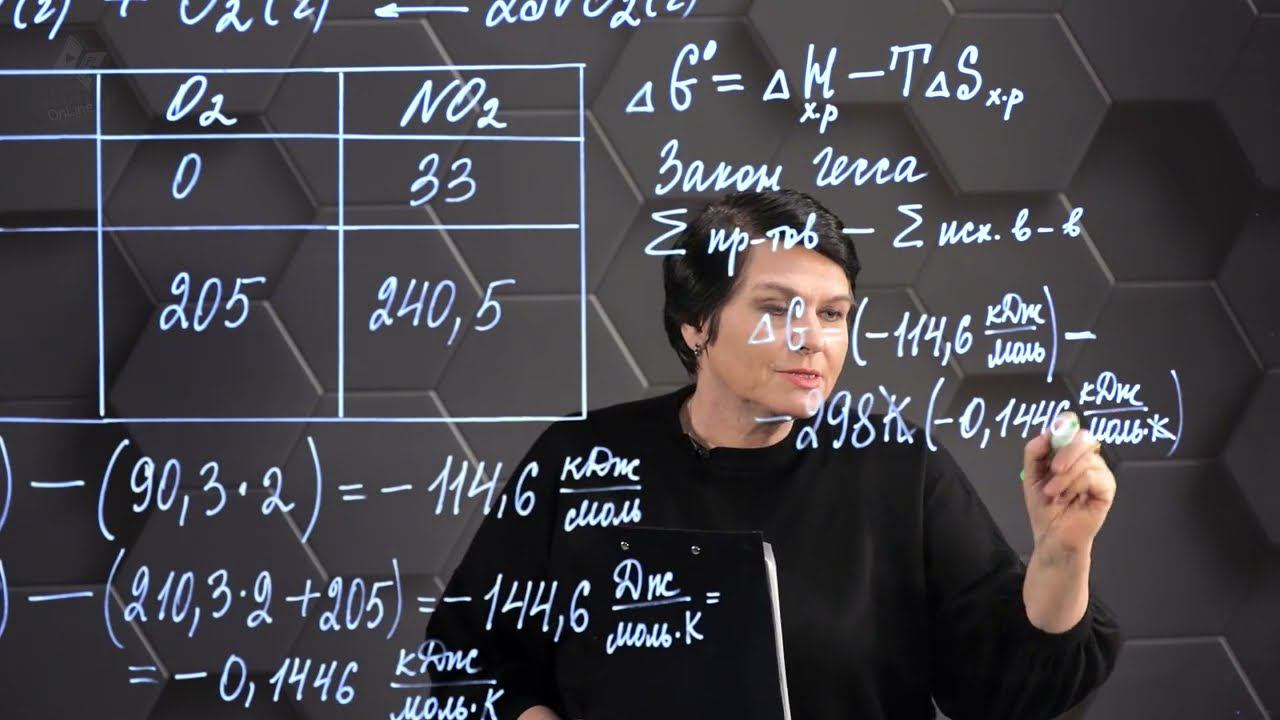 (г) + O₂(г) ← 2NO₂(г)
O₂ NO₂
0 33
205 240,5
ΔG° = ΔH х.р − TΔS х.р
Закон Гесса
Σ пр-тов − Σ исх. в-в
ΔG = (−114,6 кДж/моль) −
− 298К (−0,1446 кДж/моль·К)
) − (90,3·2) = −114,6 кДж/моль
) − (210,3·2+205) = −144,6 Дж/моль·К =
= −0,1446 кДж/моль·К
OnLine